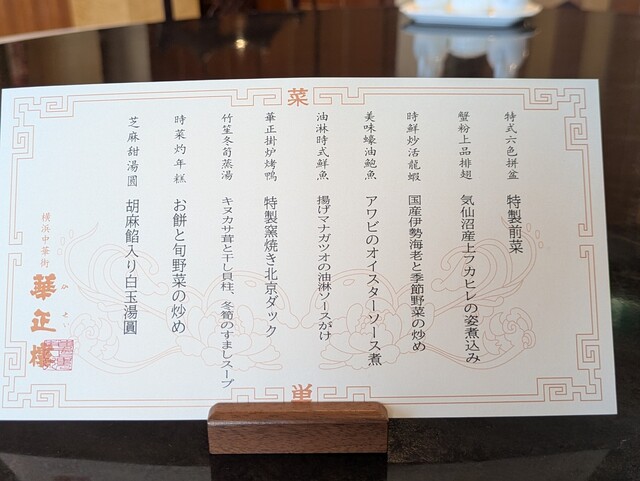 菜
特式六色拼盆
特製前菜
蟹粉上品排翅
気仙沼産上フカヒレの姿煮込み
時鮮炒活龍蝦
国産伊勢海老と季節野菜の炒め
美味蠔油鮑魚
アワビのオイスターソース煮
油淋時式鮮魚
揚げマナガツオの油淋ソースがけ
華正掛炉烤鴨
特製窯焼き北京ダック
竹笙冬筍蒸湯
キヌカサ茸と干し貝柱、冬筍のすましスープ
時菜灼年糕
お餅と旬野菜の炒め
芝麻甜湯圓
胡麻餡入り白玉湯圓
横浜中華街
華正樓
単